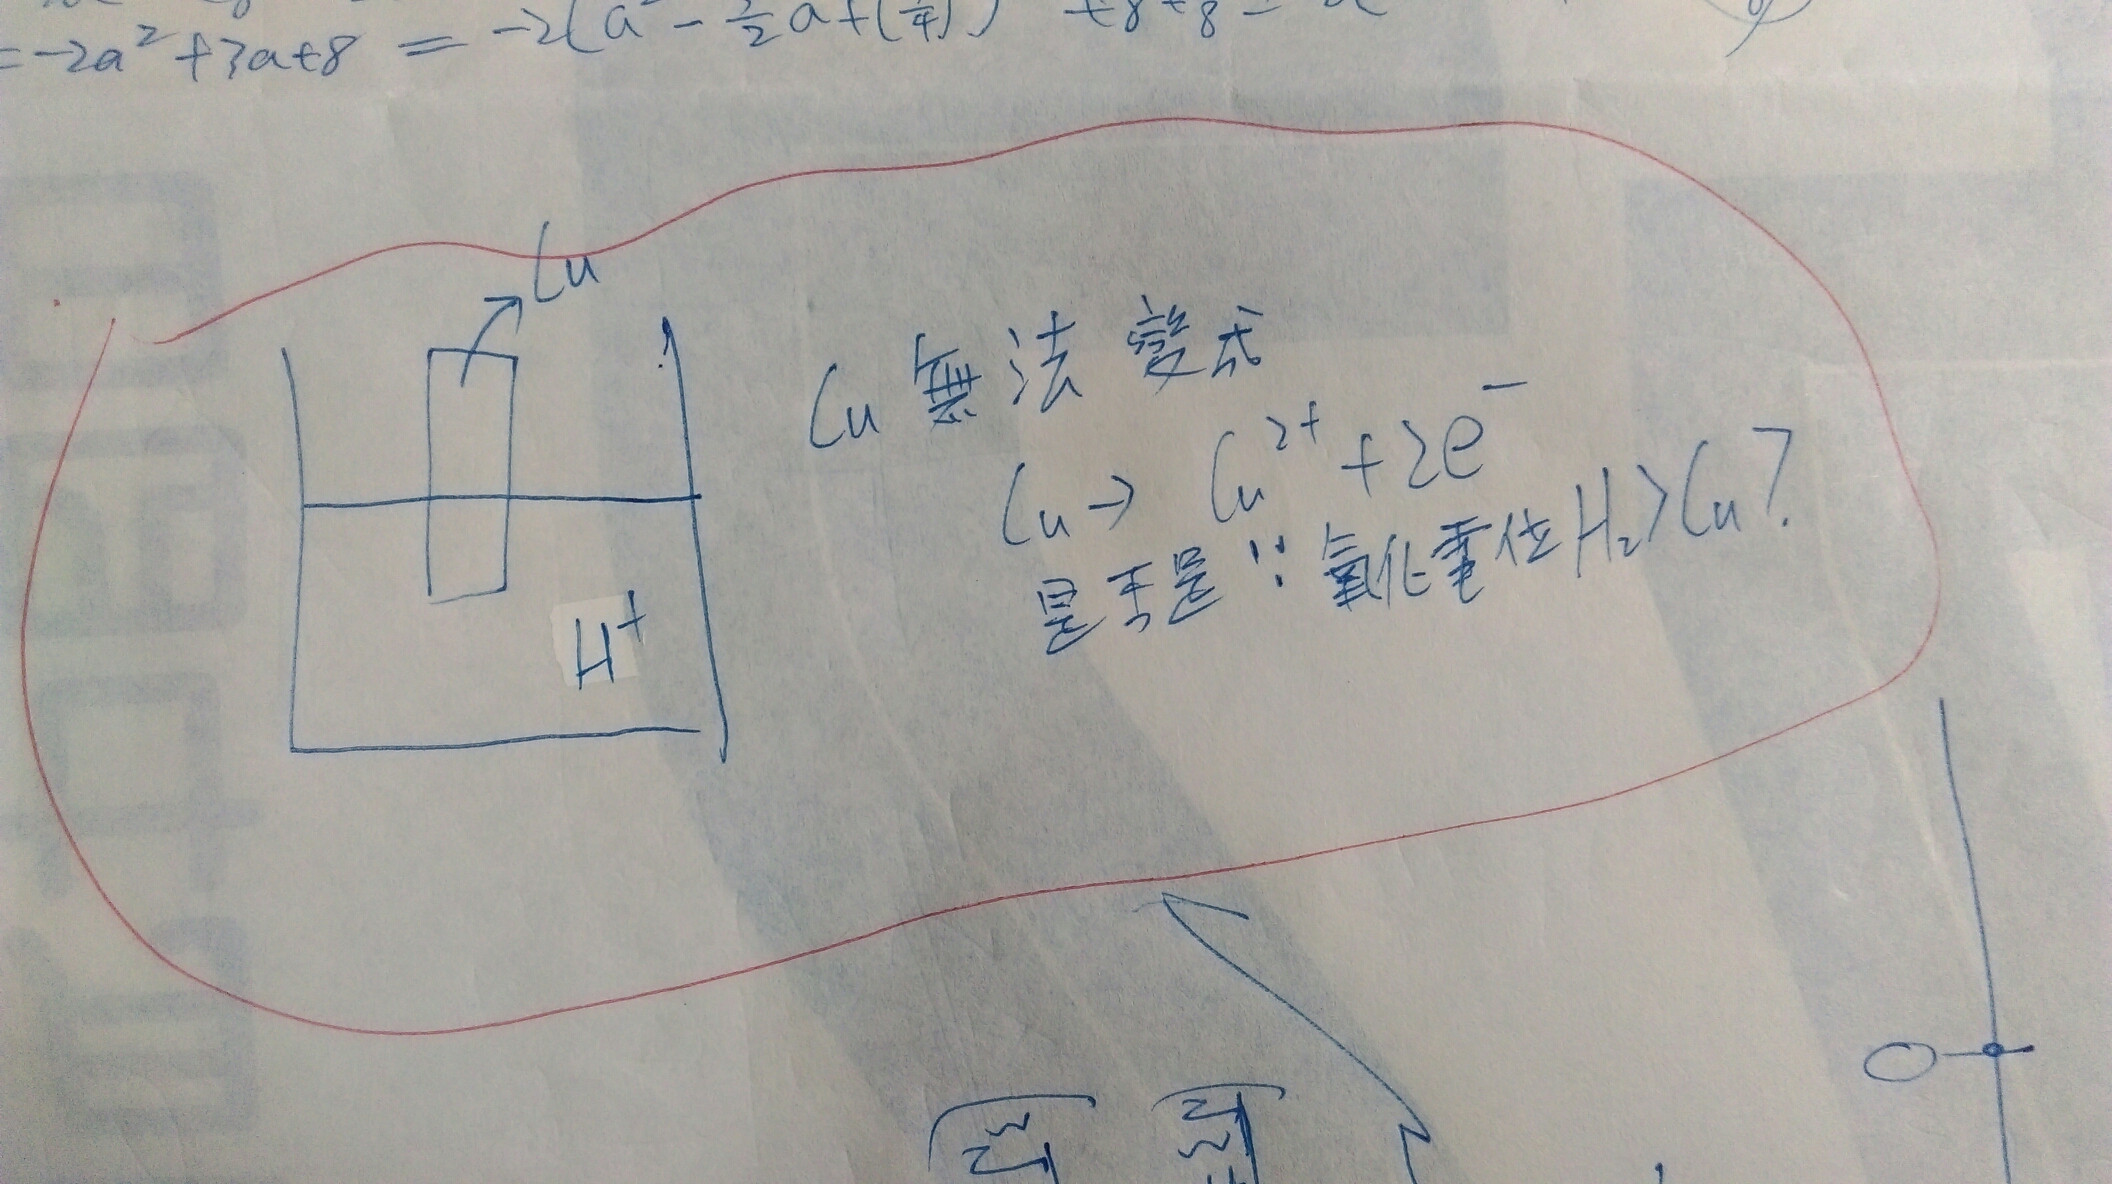 =-2a²+3a+8 = -2(a²-3/2a+(3/4)²)+8+8=
Cu
H⁺
Cu 無法變成
Cu→ Cu²⁺+2e⁻
是不是∵氧化電位H₂>Cu?
O